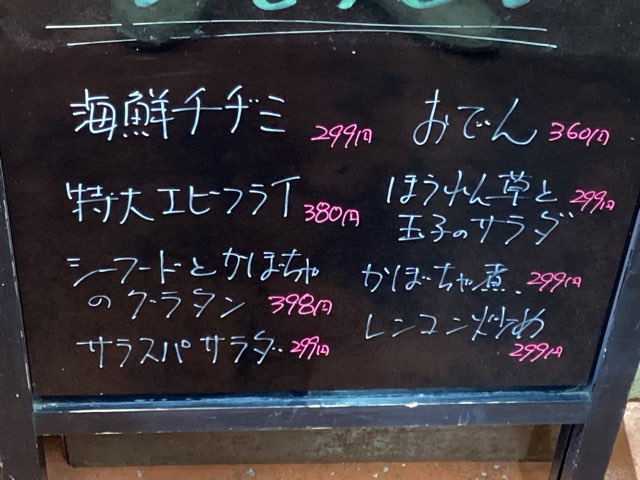 海鮮チヂミ 299円
特大エビフライ 380円
シーフードとかぼちゃ
のグラタン 398円
サラスパサラダ 299円
おでん 360円
ほうれん草と 299円
玉子のサラダ
かぼちゃ煮 299円
レンコン炒め
299円